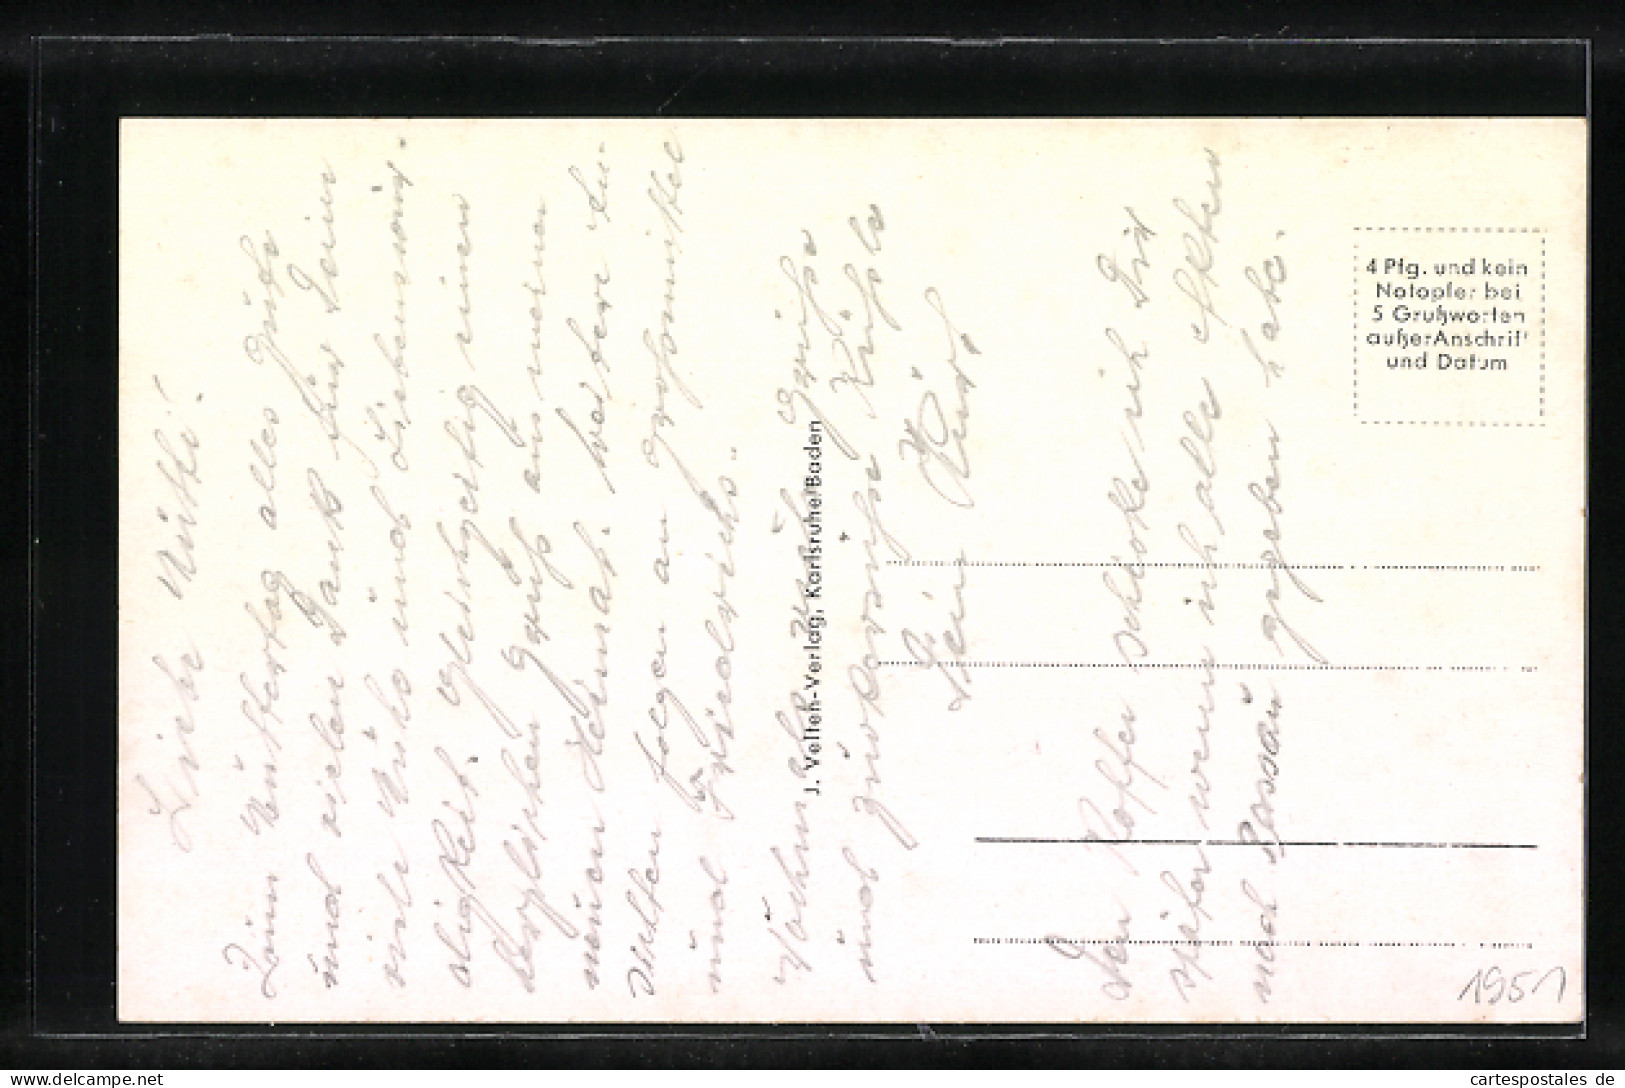 Liebe Mutti!
Zum Muttertag alles Gute
und vielen Dank für Deine
viele Mühe und Liebenswür-
digkeit. Gleichzeitig einen
herzlichen Gruß aus meiner
neuen Heimat. Weitere
folgen an Großmutter
und Friedrichs.
Grüße
und Küsse
Dein Kurt.
Den Koffer schicke ich Dir
später wenn ich alle
nach Passau gegeben habe.
J. Velten-Verlag, Karlsruhe/Baden
4 Pfg. und kein
Notopfer bei
5 Grußworten
außer Anschrift
und Datum
1951
cartespostales de